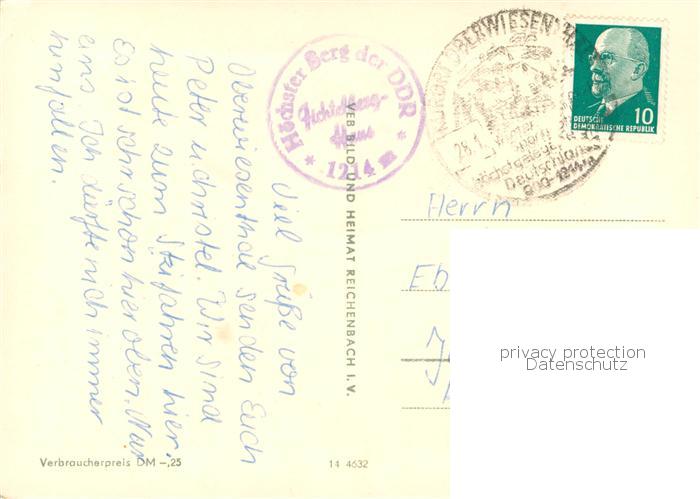 Viel Grüße von
Oberwiesenthal senden Euch
Peter u. Christel. Wir sind
heute zum Skifahren hier.
Es ist sehr schön hier oben. Nur
eins. Ich dürfte nich immer
hinfallen.
Höchster Berg der DDR
Fichtelberg-
Haus
* 1214 m *
KURORT OBERWIESENTHAL
28.1.
Deutschlands
900-1214 m
10
DEUTSCHE
DEMOKRATISCHE REPUBLIK
VEB BILD UND HEIMAT REICHENBACH I. V.
Herrn
Eb
privacy protection
Datenschutz
Verbraucherpreis DM -,25
14 4632